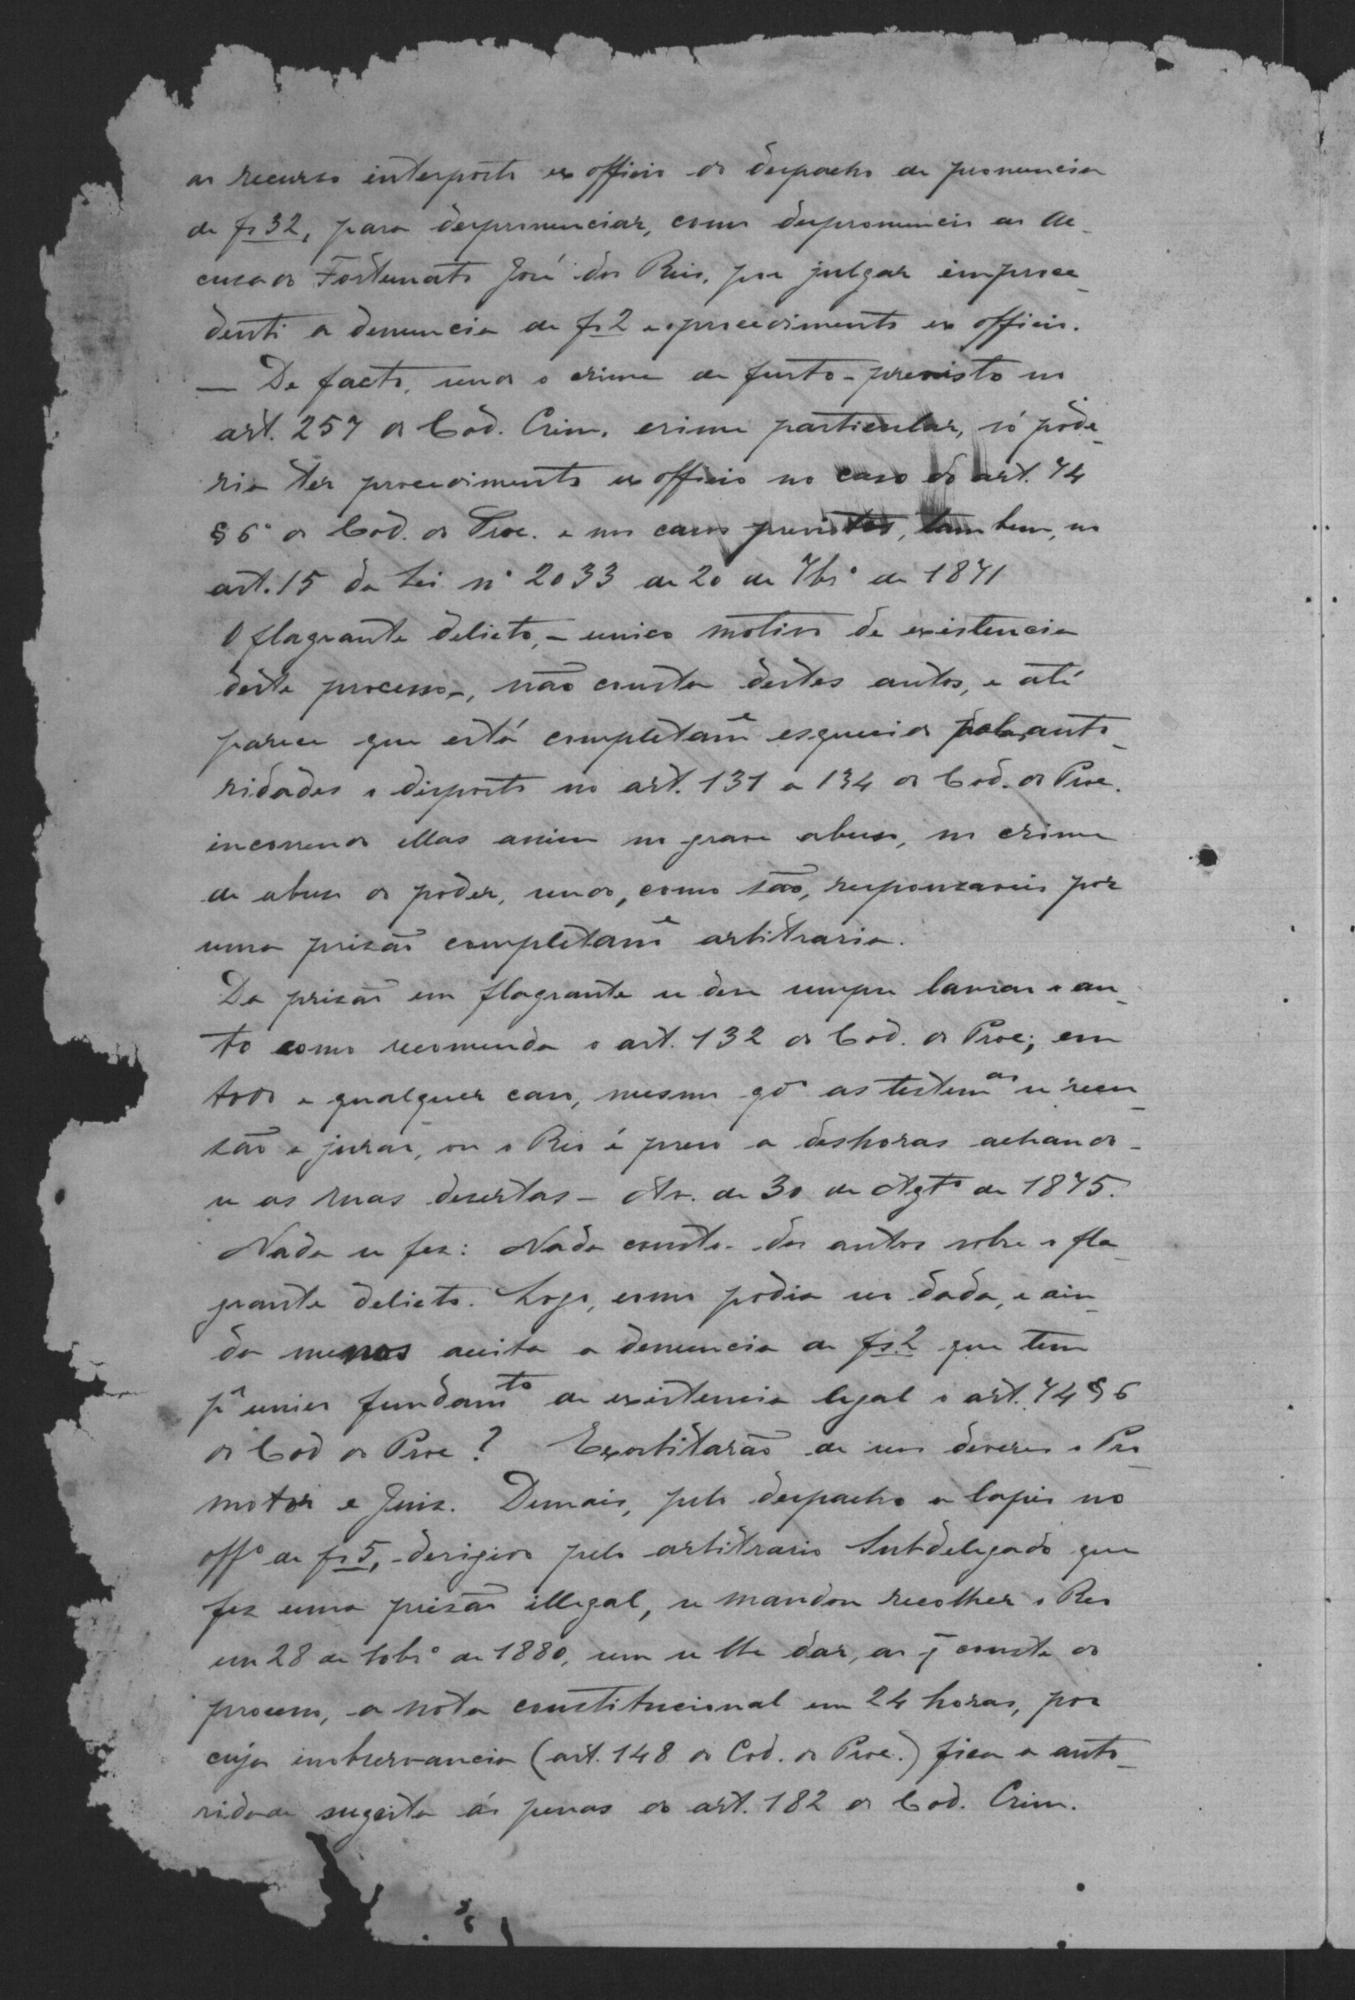 ao recurso interposto ex officio do despacho de pronuncia
de fs 32, para despronunciar, como despronuncio ao Ac-
cusado Fortunato José dos Reis, por julgar improce-
dente a denuncia de fs 2 e o procedimento ex officio.
— De facto, sendo o crime de furto - previsto no
art. 257 do Cod. Crim. crime particular, só pode-
ria ter procedimento ex officio no caso do art. 74
§ 6º do Cod. do Proc. e nos casos previstos, tambem, no
art. 15 da Lei nº 2033 de 20 de 7brº de 1871
O flagrante delicto, - unico motivo de existencia
deste processo -, não consta destes autos, e até
parece que está completamẽ esquecido pelas auto-
ridades o disposto no art. 131 a 134 do Cod. do Proc.
incorrendo ellas assim no grave abuso, no crime
de abuso do poder, sendo, como são, responsaveis por
uma prizão completamẽ arbitraria.
Da prizão em flagrante se deve sempre lavrar o au-
to como recomenda o art. 132 do Cod. do Proc; em
todo e qualquer caso, mesmo qdº as testemas se recu-
são a jurar, ou o Reo é preso a deshoras achando-
se as ruas desertas - Av. de 30 de Agtº de 1875.
Nada se fez: Nada consta dos autos sobre o fla-
grante delicto. Logo, como podia ser dada, e ain-
da menos aceita a denuncia de fs. 2 que tem
pr unico fundamto de existencia legal o art. 74 § 6
do Cod do Proc? Exorbitarão de seus deveres o Pro-
motor e Juiz. Demais, pelo despacho a lapis no
offº de fs 5, derigido pelo arbitrario Subdelegado que
fez uma prizão illegal, se mandou recolher o Reo
em 28 de 10brº de 1880, sem se lhe dar, ao q̃ consta do
processo, a nota constitucional em 24 horas, por
cuja inobservancia (art. 148 do Cod. do Proc.) fica a auto-
ridade sugeita ás penas do art. 182 do Cod. Crim.